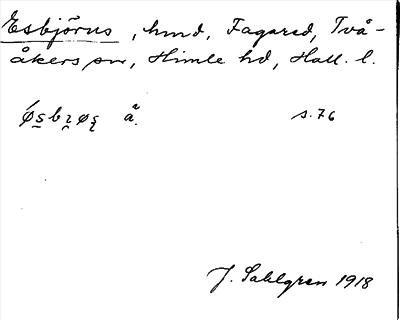 Esbjörus, hmd, Fagared, Två-
åkers sn, Himle hd, Hall. l.
å. s. 76
J. Sahlgren 1918